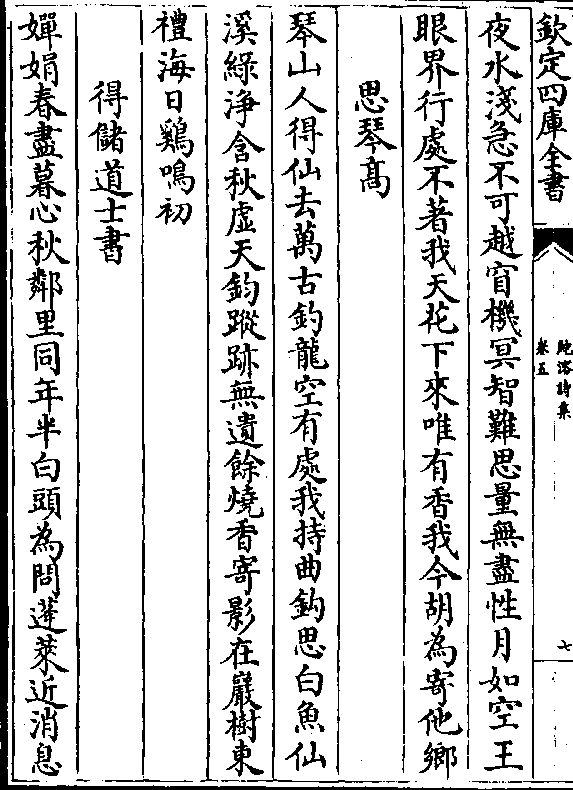 欽定四庫全書
鮑溶詩集
卷五
七
夜水淺急不可越窅機冥智難思量無盡性月如空王
眼界行處不著我天花下來唯有香我今胡為寄他鄉
思琴髙
琴山人得仙去萬古釣龍空有處我持曲鈎思白魚仙
溪綠浄含秋虛天鈞蹤跡無遺餘燒香寄影在巖樹東
禮海日鷄鳴初
得儲道士書
嬋娟春盡暮心秋鄰里同年半白頭為問蓬萊近消息